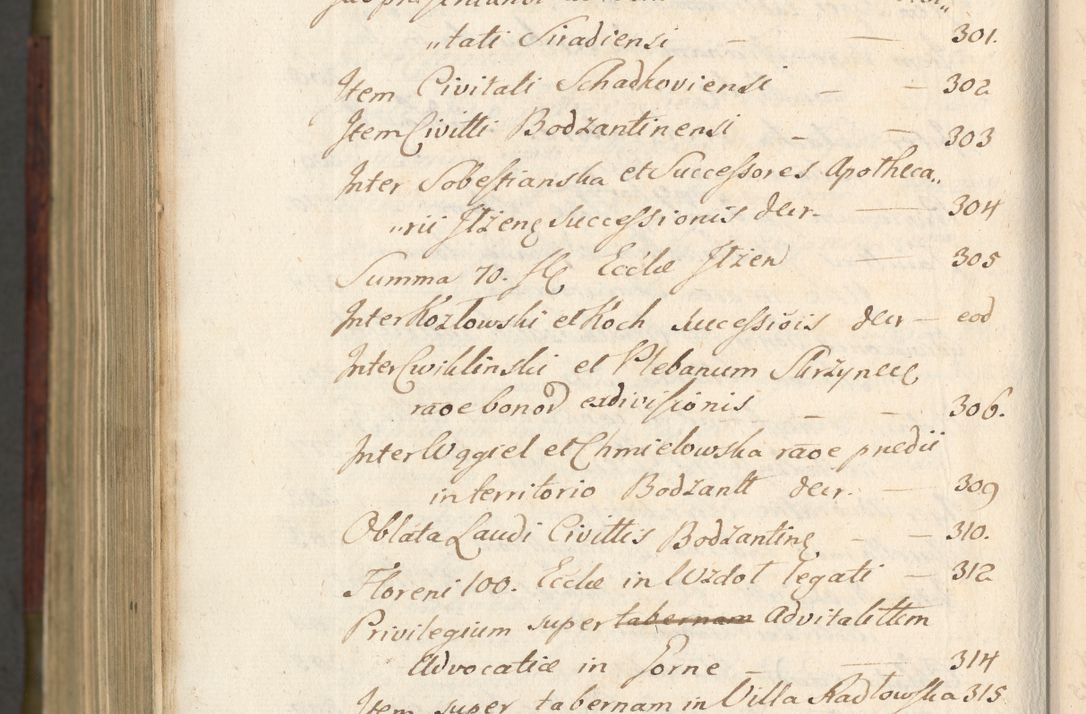 „tati Siradiensi — — 301.
Item Civitati Schadkoviensi — — 302
Item Civitti Bodzantinensi — — 303
Inter Sobestianska et Successores Apotheca„
„rii Itżenę Successionis decr. — 304
Summa 70. Ecclæ Itżen — 305
Inter Kozłowski et Koch successiōis decr — eod
Inter Cwiklinski et Plebanum Skrzynecę
rāoe bonor exdivisionis — — 306.
Inter Węgiel et Chmielowska rāoe prædii
in territorio Bodzantt decr. — 309
Oblata Laudi Civittis Bodzantinę — — 310.
Floreni 100. Ecclæ in Wzdot legati — 312
Privilegium super tabernam Advitalittem
Advocatiæ in Gorne — — 314
Item super tabernam in Villa Radłowska 315